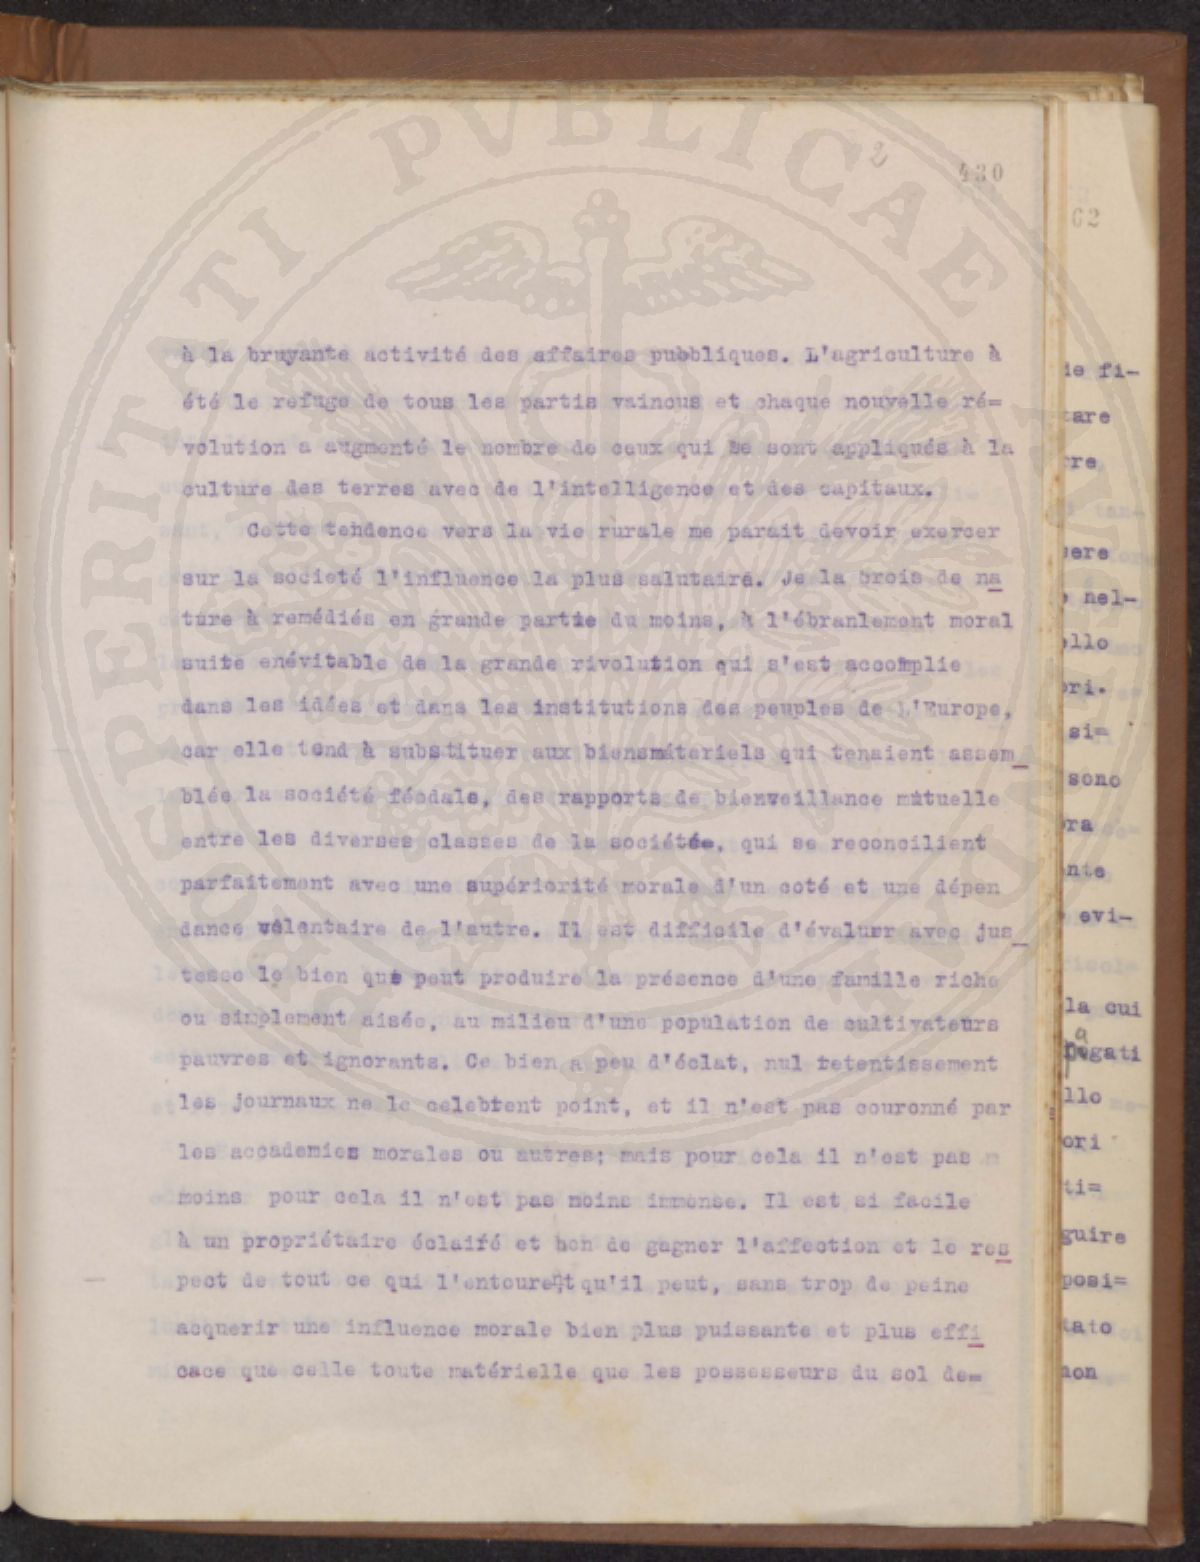 2
430
à la bruyante activité des affaires pubbliques. L'agriculture à
été le refuge de tous les partis vaincus et chaque nouvelle ré=
volution a augmenté le nombre de ceux qui se sont appliqués à la
culture des terres avec de l'intelligence et des capitaux.
Cette tendence vers la vie rurale me parait devoir exercer
sur la societé l'influence la plus salutaire. Je la crois de na
ture à remédiés en grande partie du moins, à l'ébranlement moral
suite enévitable de la grande rivolution qui s'est accomplie
dans les idées et dans les institutions des peuples de L'Europe,
car elle tend à substituer aux biensmateriels qui tenaient assem_
blée la société féodale, des rapports de bienveillance mutuelle
entre les diverses classes de la société, qui se reconcilient
parfaitement avec une supériorité morale d'un coté et une dépen
dance volentaire de l'autre. Il est difficile d'évaluer avec jus_
tesse le bien que peut produire la présence d'une famille riche
ou simplement aisée, au milieu d'une population de cultivateurs
pauvres et ignorants. Ce bien a peu d'éclat, nul retentissement
les journaux ne le celebrent point, et il n'est pas couronné par
les accademies morales ou autres; mais pour cela il n'est pas
moins pour cela il n'est pas moins immense. Il est si facile
à un propriétaire éclairé et bon de gagner l'affection et le res
pect de tout ce qui l'entourent qu'il peut, sans trop de peine
acquerir une influence morale bien plus puissante et plus effi
cace que celle toute matérielle que les possesseurs du sol de=
62
de fi-
tare
rre
sere
nel-
ello
ori.
si=
sono
ora
nte
evi-
la cui
pagati
llo
ori
ti=
guire
posi=
tato
non
PROSPERITATI PVBLICAE AVGENDAE